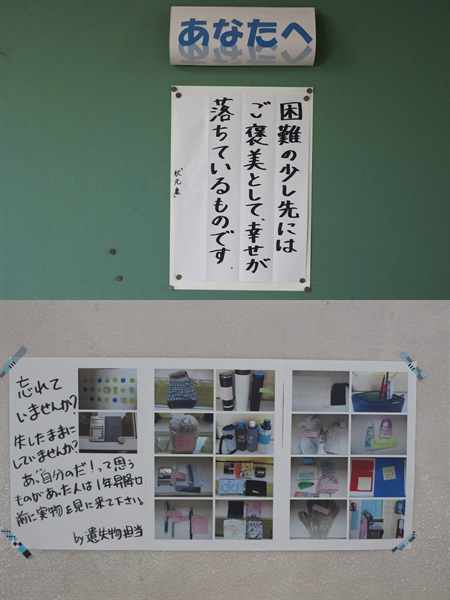 あなたへ
困難の少し先には
ご褒美として、幸せが
落ちているものです.
忘れて
いませんか?
失したままに
していませんか?
あ、自分のだ!って思う
ものがあった人は1年昇降口
前に実物を見に来て下さい。
by遺失物担当